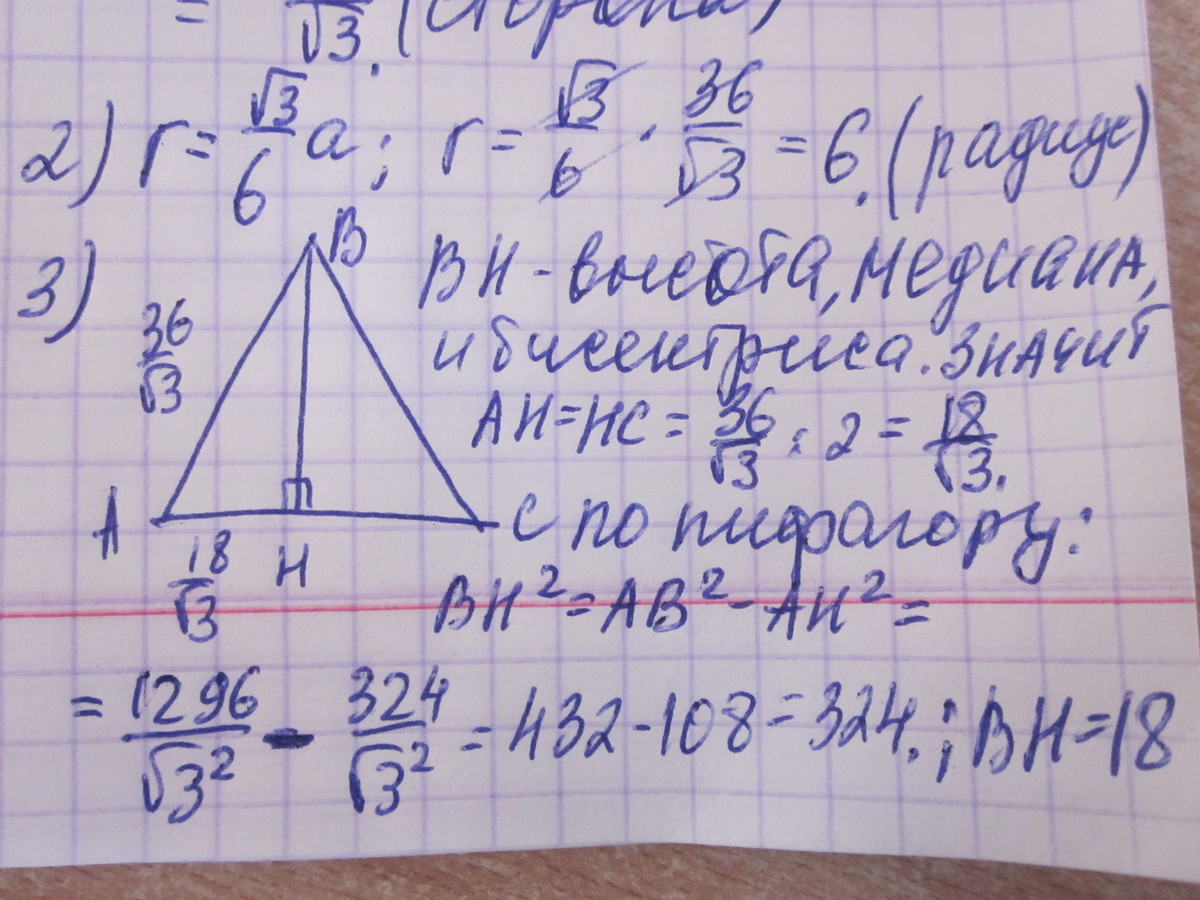 = √3. (сторона)
2) r = √3/6 a; r = √3/6 · 36/√3 = 6. (радиус)
3)
B
36/√3
A
18/√3
H
C
BH - высота, медиана,
и биссектриса. Значит
AH = HC = 36/√3 : 2 = 18/√3.
по пифагору:
BH² = AB² - AH² =
= 1296/√3² - 324/√3² = 432 - 108 = 324.; BH = 18